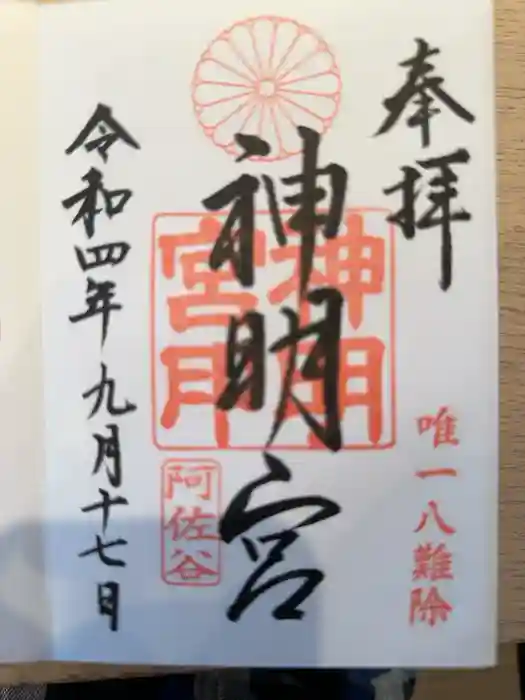 奉拝
唯一八難除
神明宮
阿佐谷
令和四年九月十七日